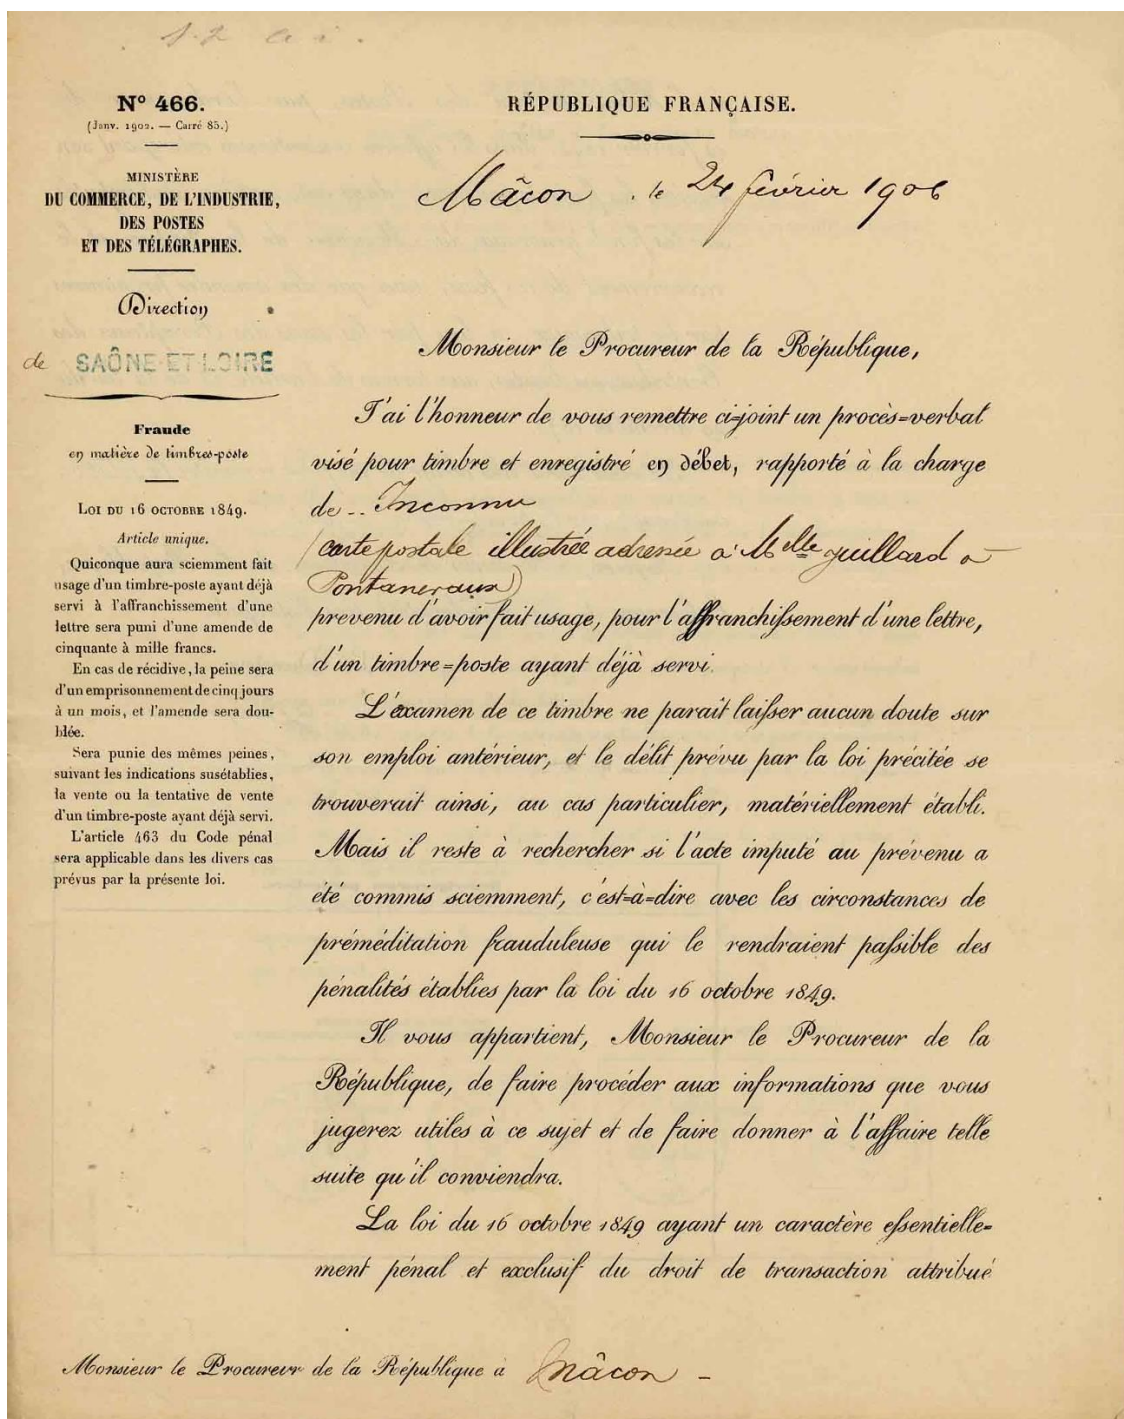 N° 466.
(Janv. 1902. — Carré 85.)
MINISTÈRE
DU COMMERCE, DE L'INDUSTRIE,
DES POSTES
ET DES TÉLÉGRAPHES.
Direction
de SAÔNE-ET-LOIRE
Fraude
en matière de timbres-poste
LOI DU 16 OCTOBRE 1849.
Article unique.
Quiconque aura sciemment fait
usage d'un timbre-poste ayant déjà
servi à l'affranchissement d'une
lettre sera puni d'une amende de
cinquante à mille francs.
En cas de récidive, la peine sera
d'un emprisonnement de cinq jours
à un mois, et l'amende sera dou-
blée.
Sera punie des mêmes peines,
suivant les indications susétablies,
la vente ou la tentative de vente
d'un timbre-poste ayant déjà servi.
L'article 463 du Code pénal
sera applicable dans les divers cas
prévus par la présente loi.
RÉPUBLIQUE FRANÇAISE.
Mâcon, le 24 février 1906
Monsieur le Procureur de la République,
J'ai l'honneur de vous remettre ci=joint un procès=verbal
visé pour timbre et enregistré en débet, rapporté à la charge
de Inconnu
(carte postale illustrée adressée à Melle Guillard à
Pontanevaux)
prévenu d'avoir fait usage, pour l'affranchissement d'une lettre,
d'un timbre=poste ayant déjà servi.
L'examen de ce timbre ne paraît laisser aucun doute sur
son emploi antérieur, et le délit prévu par la loi précitée se
trouverait ainsi, au cas particulier, matériellement établi.
Mais il reste à rechercher si l'acte imputé au prévenu a
été commis sciemment, c'est=à=dire avec les circonstances de
préméditation frauduleuse qui le rendraient passible des
pénalités établies par la loi du 16 octobre 1849.
Il vous appartient, Monsieur le Procureur de la
République, de faire procéder aux informations que vous
jugerez utiles à ce sujet et de faire donner à l'affaire telle
suite qu'il conviendra.
La loi du 16 octobre 1849 ayant un caractère essentielle=
ment pénal et exclusif du droit de transaction attribué
Monsieur le Procureur de la République à Mâcon -